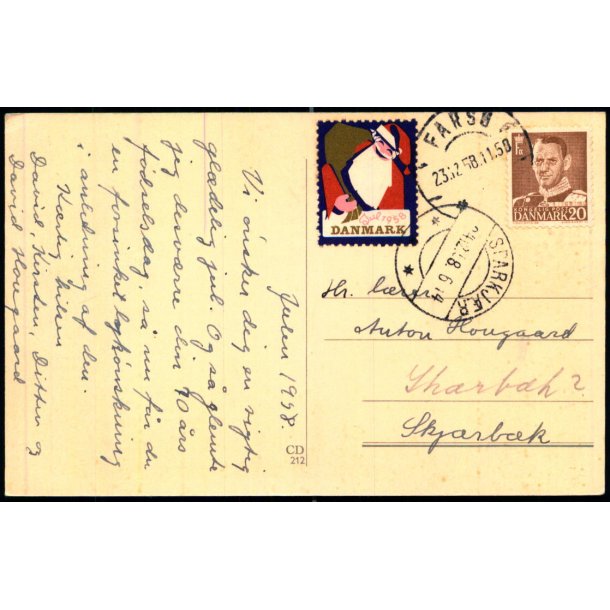 Julen 1958.
Vi ønsker dig en rigtig
glædelig jul. Også glemte
jeg desværre din 70 års
fødselsdag, så nu får du
en forsinket lykønskning
i anledning af den.
Kærlig hilsen
David, Kirsten, Ditten og
David Hougaard
CD
212
Jul 1958
DANMARK
FARSØ
23.12.58.11.50
Fa
KONGELIG POST
DANMARK 20
STARKJÆR
Hr. lærer
Anton Hougaard
Skærbæk?
Skjærbæk